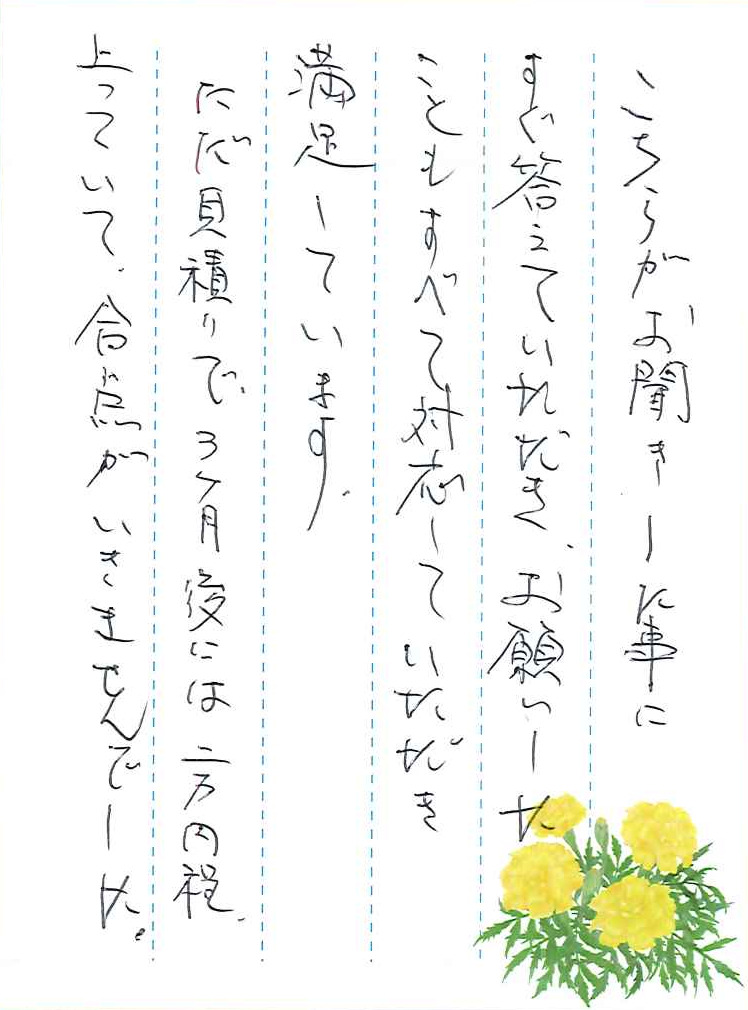 こちらがお聞きした事に
すぐ答えていただき、お願いした
こともすべて対応していただき
満足しています。
ただ見積りで、3ヶ月後には二万円程、
上っていて、合点がいきませんでした。